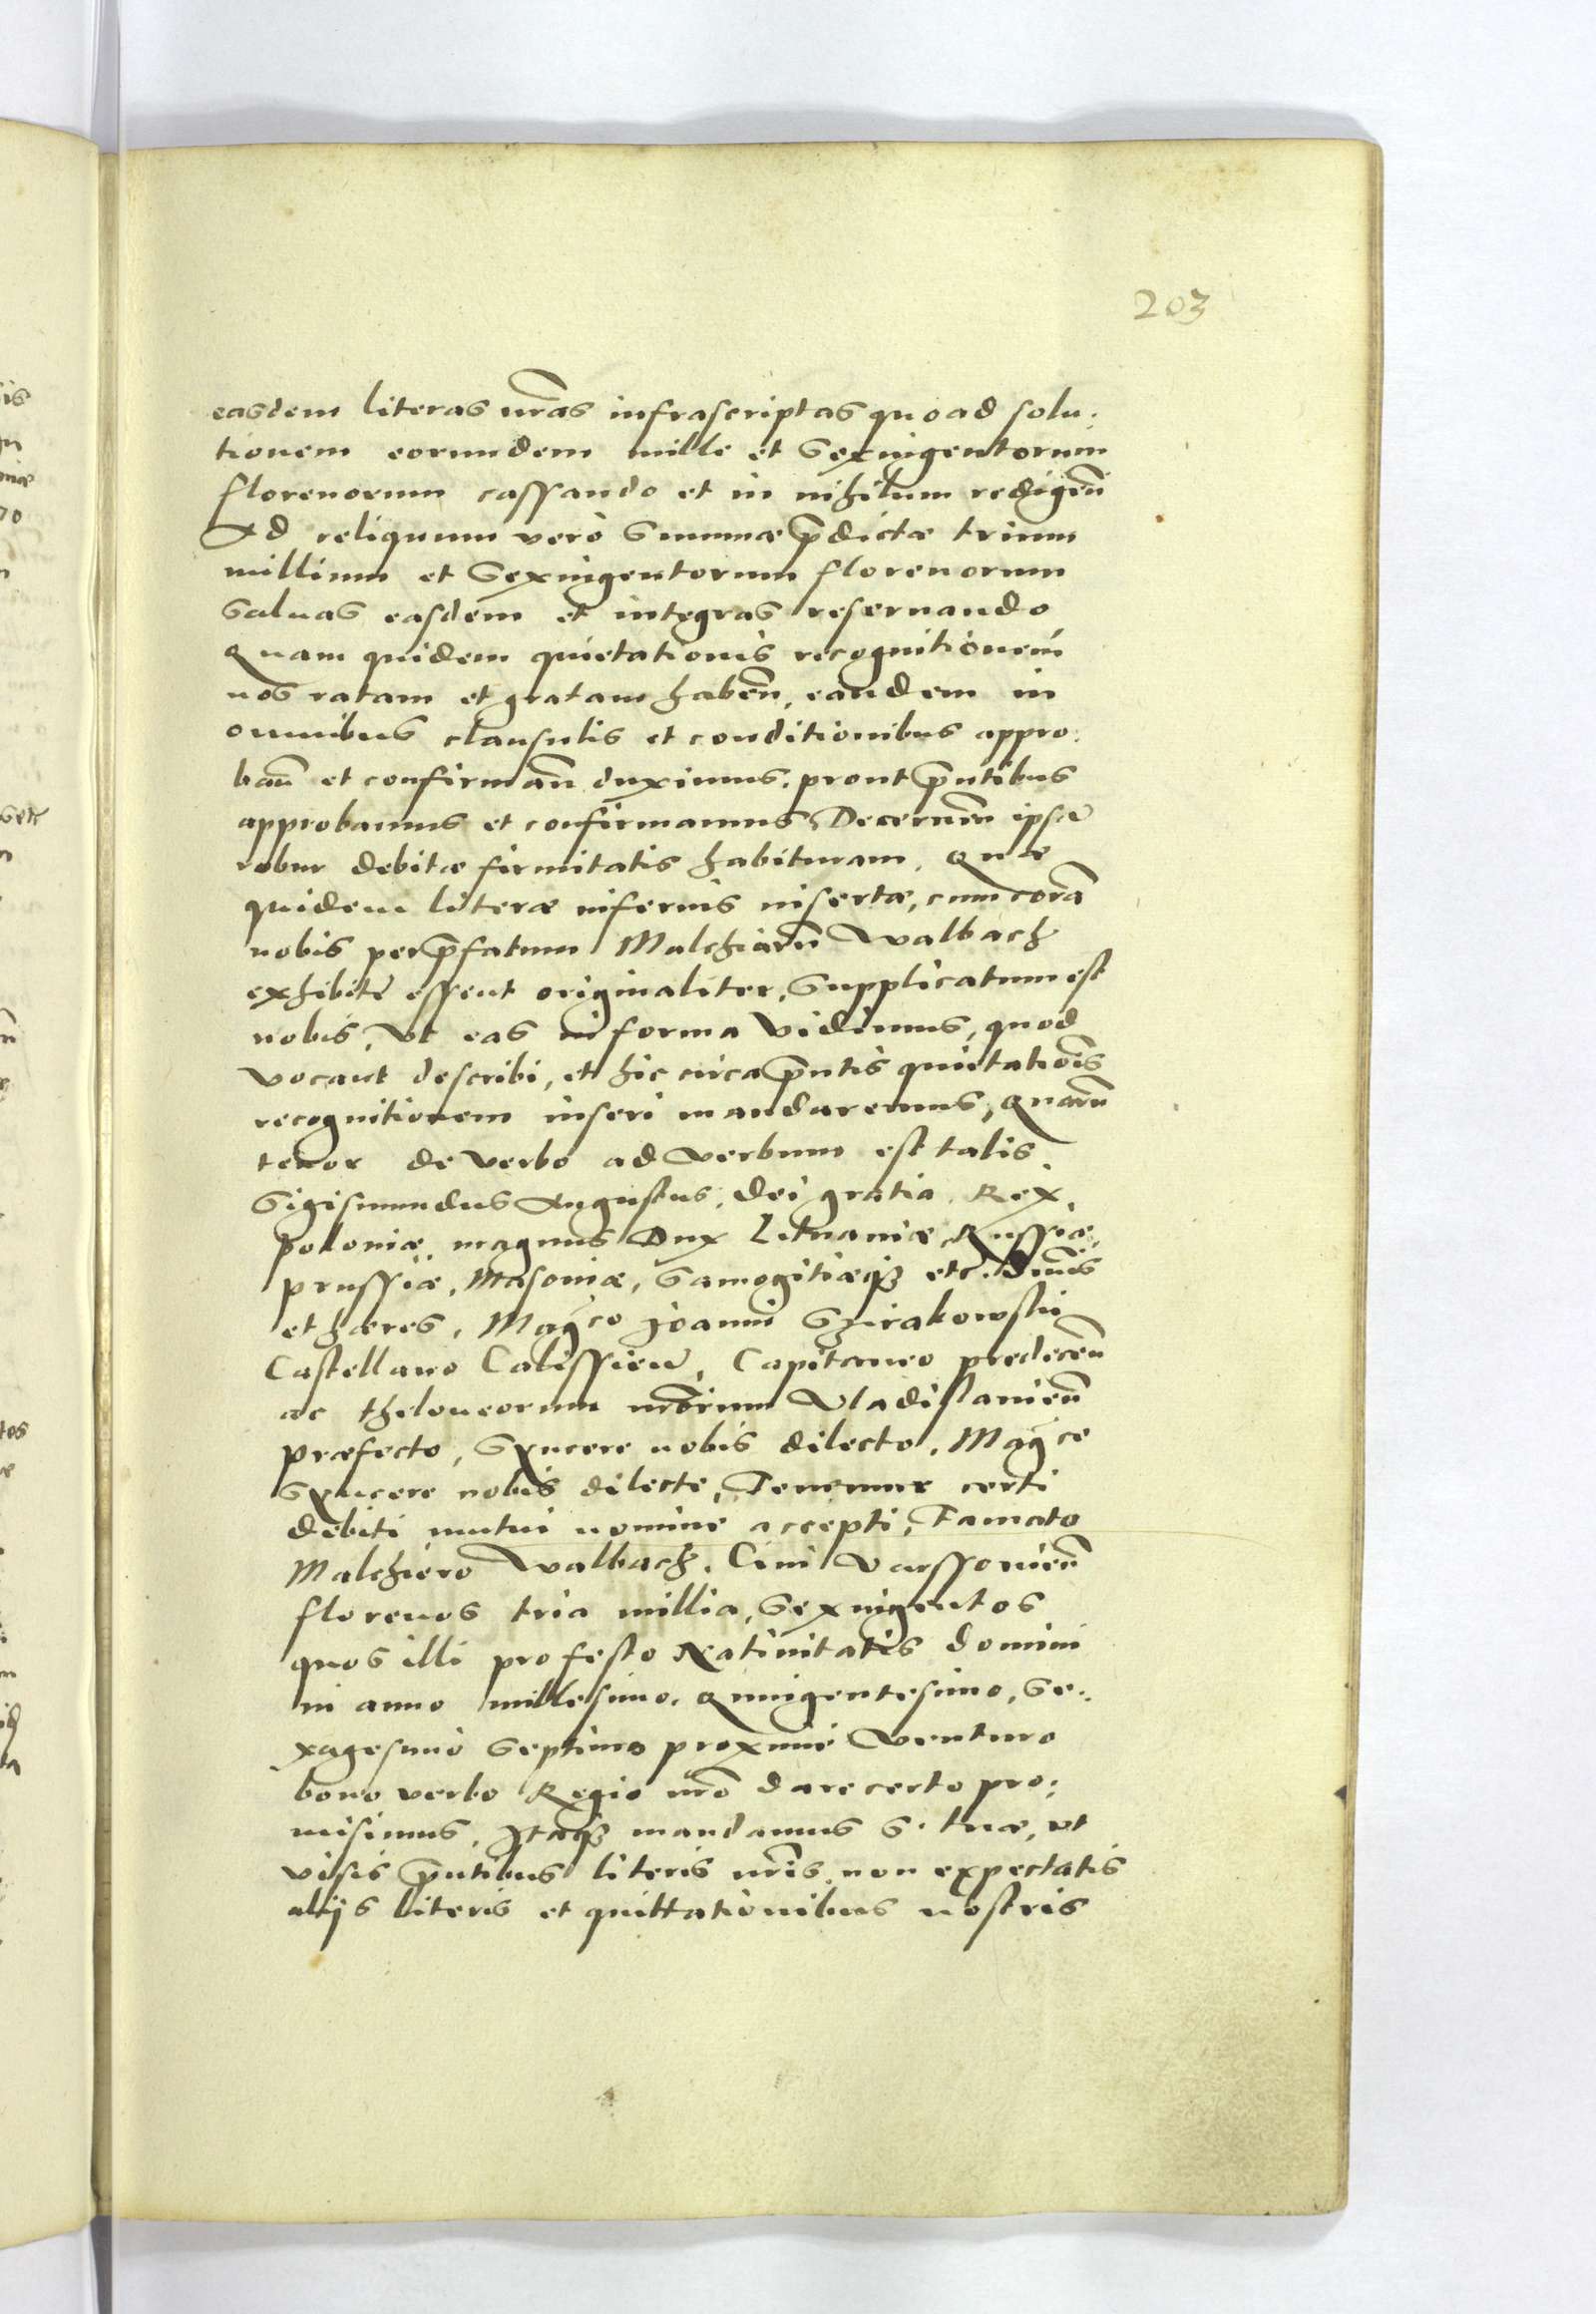 203
easdem literas nr̃as infrascriptas quoad solu-
tionem eorundem mille et Sexingentorum
florenorum cassando et in nihilum redigeñ
Ad reliquum vero Summæ p̃dictæ trium
millium et Sexingentorum florenorum
Saluas easdem et integras reseruando
Quam quidem quietationis recognitionem
nos ratam et gratam habeñ, eandem in
omnibus clausulis et conditionibus appro-
bañ et confirmañ duximus. prout p̃ntibus
approbamus et confirmamus, Decerneñ ipsã
robur debitæ firmitatis habituram. Quæ
quidem literæ infernis insertæ, cum corã
nobis per p̃fatum Malchiarũ Walbach
exhibitè essent originaliter, Supplicatum est
nobis, Vt eas in forma Vidimus, quod
vocant describi, et hic circa p̃ntis quietatiõis
recognitionem inseri mandaremus, Quarũ
tenor de verbo ad verbum est talis.
Sigismundus Augustus, Dei gratia, Rex,
poloniæ, magnus Dux Lituaniæ, Russiæ,
prussiæ, Masouiæ, Samogitiæq3 etc. dñus
et hæres, Mag̃co Joanni Szirakowski
Castellano Calissieñ, Capitaneo predeceñ
ac theloneorum nr̃orum Vladislauieñ
præfecto, Syncere nobis dilecto, Mag̃ce
Syncere nobis dilecte, Tenemur certi
debiti mutui nomine accepti, Famato
Malchiero Walbach, Ciui Varssouieñ
florenos tria millia, Sexingentos
quos illi pro festo Natiuitatis domini
in anno millesimo, Quingentesimo, Se-
xagesimo Septimo proximè venturo
bono verbo Regio nr̃o dare certo pro-
misimus, Itaq3 mandamus S. tuæ, vt
visis p̃ntibus literis nr̃is, non expectatis
alijs literis et quittationibus nostris